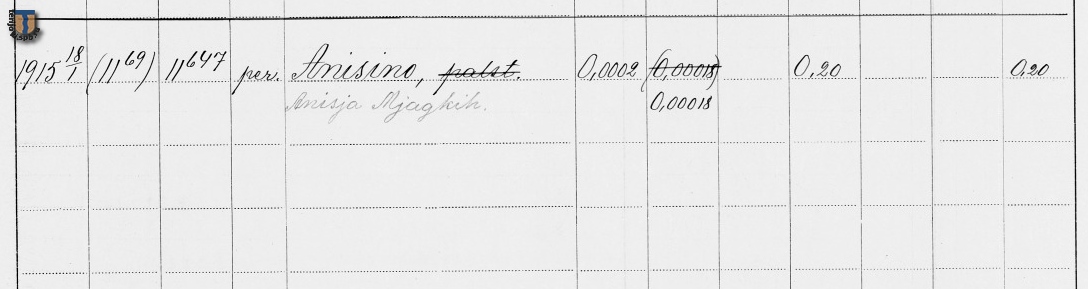 1915 18/1 (11 69) 11 647 per. Anisino, palst. 0,0002 (0,00018) 0,20 0,20
Anisja Mjagkih. 0,00018